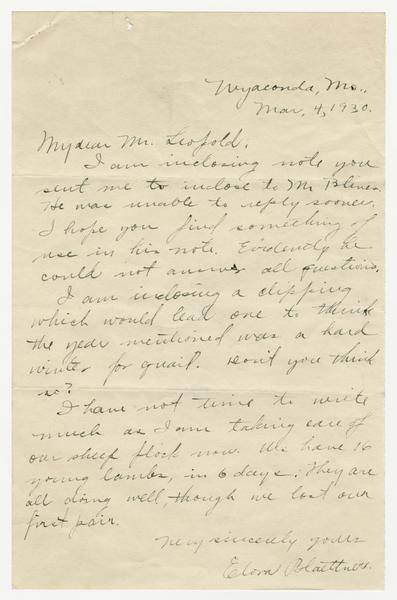 Wyaconda, Mo.,
Mar, 4, 1930.
My dear Mr. Leopold,
I am inclosing note you
sent me to inclose to Mr.
He was unable to reply sooner.
I hope you find something of
use in his note. Evidently he
could not answer all questions.
I am inclosing a clipping
which would lead one to think
the year mentioned was a hard
winter for quail. Don't you think
so?
I have not time to write
much as I am taking care of
our sheep flock now. We have 16
young lambs, in 6 days. They are
all doing well, though we lost our
first pair.
Very sincerely yours
Elora Blaettner.